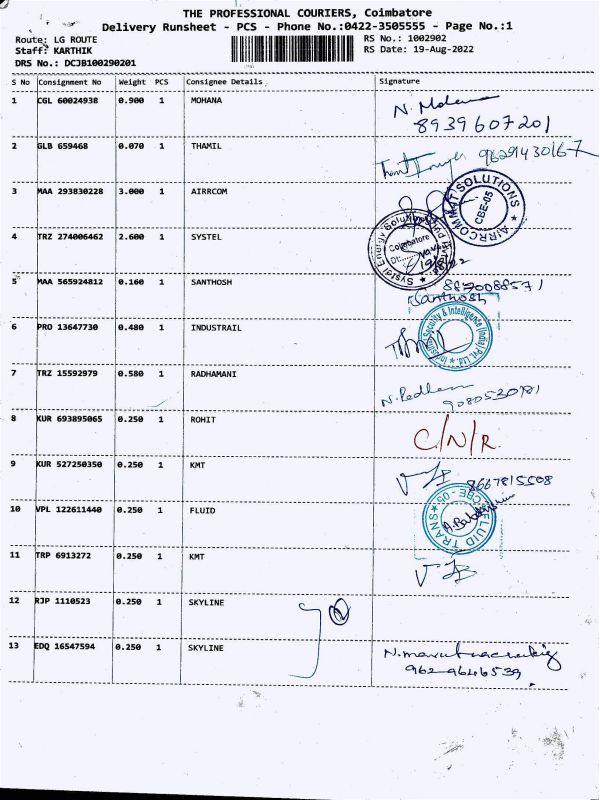 THE PROFESSIONAL COURIERS, Coimbatore
Delivery Runsheet - PCS - Phone No.:0422-3505555 - Page No.:1
Route: LG ROUTE
Staff: KARTHIK
DRS No.: DCJB100290201
RS No.: 1002902
RS Date: 19-Aug-2022
S No Consignment No Weight PCS Consignee Details Signature
1 CGL 60024938 0.900 1 MOHANA
8939607201
2 GLB 659468 0.070 1 THAMIL 96291430167
3 MAA 293830228 3.000 1 AIRRCOM
AIRRCOMMAT SOLUTIONS CBE-05
4 TRZ 274006462 2.600 1 SYSTEL
Coimbatore
5 MAA 565924812 0.160 1 SANTHOSH
Santhosh
6 PRO 13647730 0.480 1 INDUSTRAIL
Security & Intelligence (India) Pvt. Ltd.
7 TRZ 15592979 0.580 1 RADHAMANI
8 KUR 693895065 0.250 1 ROHIT C/N/R
9 KUR 527250350 0.250 1 KMT
8667815508
10 VPL 122611440 0.250 1 FLUID
FLUID TRANS CBE - 05
11 TRP 6913272 0.250 1 KMT
12 RJP 1110523 0.250 1 SKYLINE
13 EDQ 16547594 0.250 1 SKYLINE